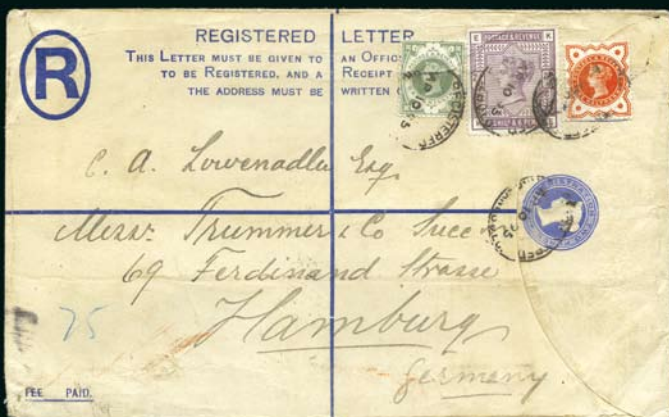 REGISTERED LETTER
THIS LETTER MUST BE GIVEN TO AN OFFIC
TO BE REGISTERED, AND A RECEIPT
THE ADDRESS MUST BE WRITTEN
R
POSTAGE & REVENUE
E K
REGISTERED
C. A. Lowenadler Esq.
Messrs. Trummer & Co Succ
69 Ferdinand Strasse
Hamburg
Germany.
75
FEE PAID.